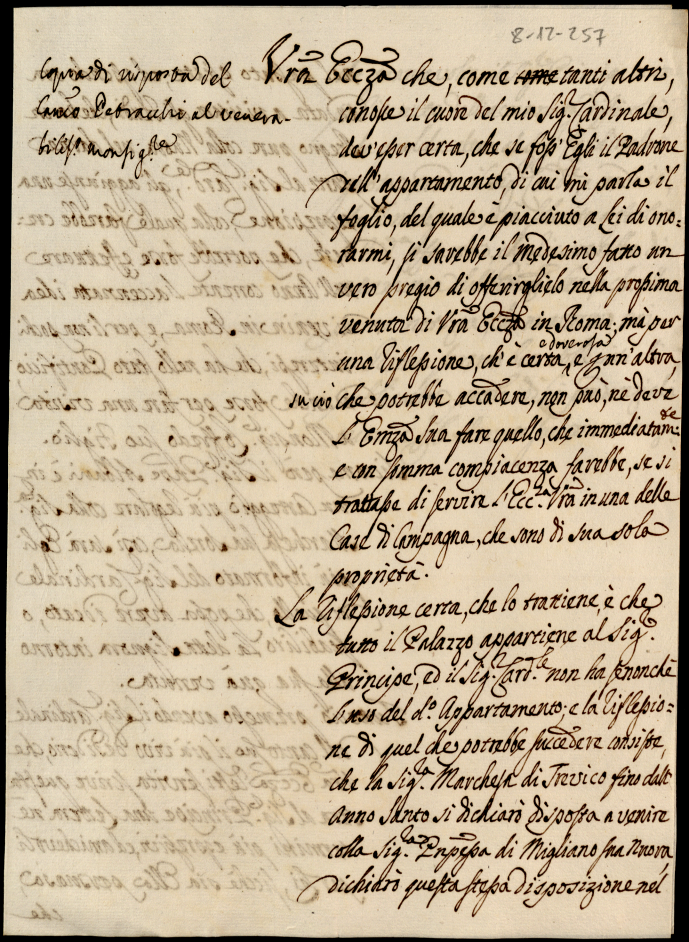 8-12-257
Copia di risposta del
Canco Petracchi al venera-
biliss. monsigre
Vrã Ecczã che, come come tanti altri,
conosce il cuore del mio Sigr. Cardinale,
dev'esser certa, che se foss'Egli il Padrone
dell'appartamento, di cui mi parla il
foglio, del quale è piacciuto a Lei di ono-
rarmi, si sarebbe il medesimo fatto un
vero pregio di offerirglielo nella prossima
venuta di Vrã Ecczã in Roma; mà per
una riflessione, ch'è certa, e doverosa, e per un'altra,
su ciò che potrebbe accadere, non può, nè deve
l'Emzã Sua fare quello, che immediatamte
e con somma compiacenza farebbe, se si
trattasse di servire l'Ecc.za Vrã in una delle
Case di Campagna, che sono di sua sola
proprietà.
La riflessione certa, che lo trattiene, è che
tutto il Palazzo appartiene al Sigr.
Principe, ed il Sigr. Cardle non ha senonchè
l'uso del do. Appartamento; e la riflessio-
ne di quel che potrebbe succedere consiste,
che la Sigra Marchesa di Trevico fino dall'
Anno Santo si dichiarò disposta a venire
colla Sigra Pnpessa di Migliano sua Nuora,
dichiarò questa stessa disposizione nel
che